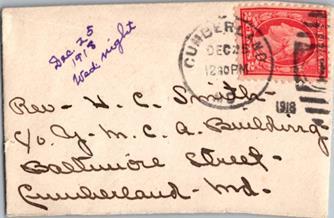 Dec 25
1918
Wed night
CUMBERLAND
DEC 26
12 30 PM
MD.
1918
Rev. H. C. Smith-
c/o Y-M.C.A. Building
Baltimore Street-
Cumberland- Md.